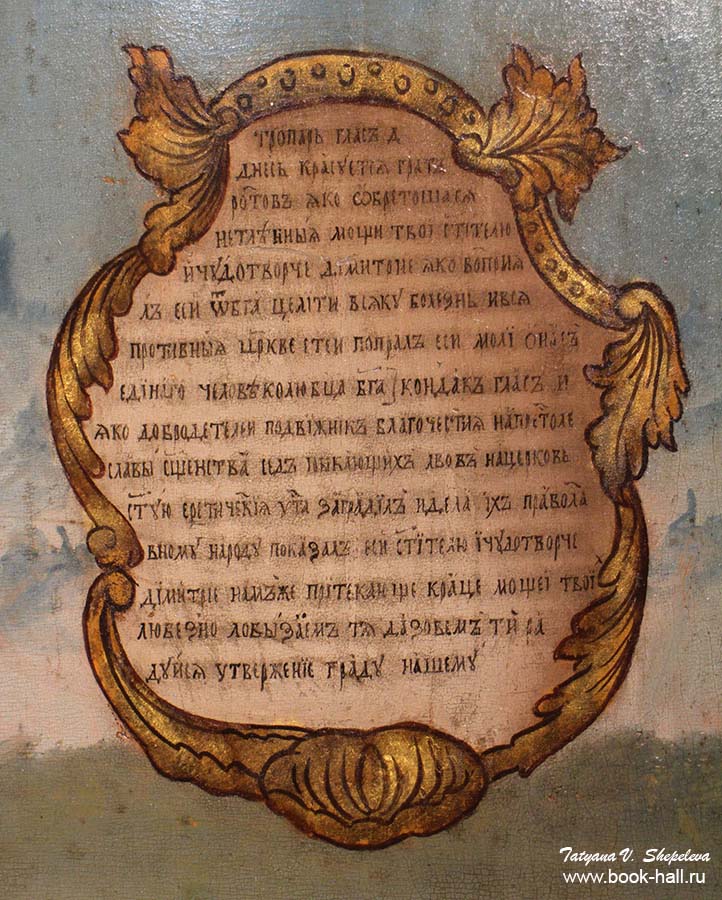 тропарь гласъ д
днесь красуется градъ
ростовъ яко ѡбретошася
нетлѣнныя мощи твоі стителю
и чудотворче дімитріе яко воспрія
лъ еси ѿ бга целіти всяку болезнь и вся
противныя цркве стеи попралъ еси молі о насъ
едінаго человѣколюбца бга кондакъ гласъ и
яко добродетелеи подвіжнікъ благочестия на престоле
славы сщенства седъ рыкающихъ лвовъ на церковь
стую еретическія уста заградилъ и дела іхъ правосла
вному народу показалъ еси стітелю і чудотворче
дімитріе
любезно лобызаемъ тя да зовемъ ти ра
дуйся утвержение граду нашему
Tatyana V. Shepeleva
www.book-hall.ru